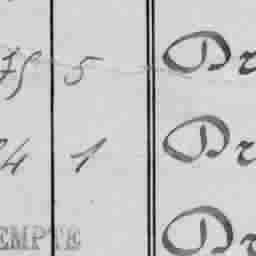 75 5 Dr
24 1 Dr
EMPTE Dr